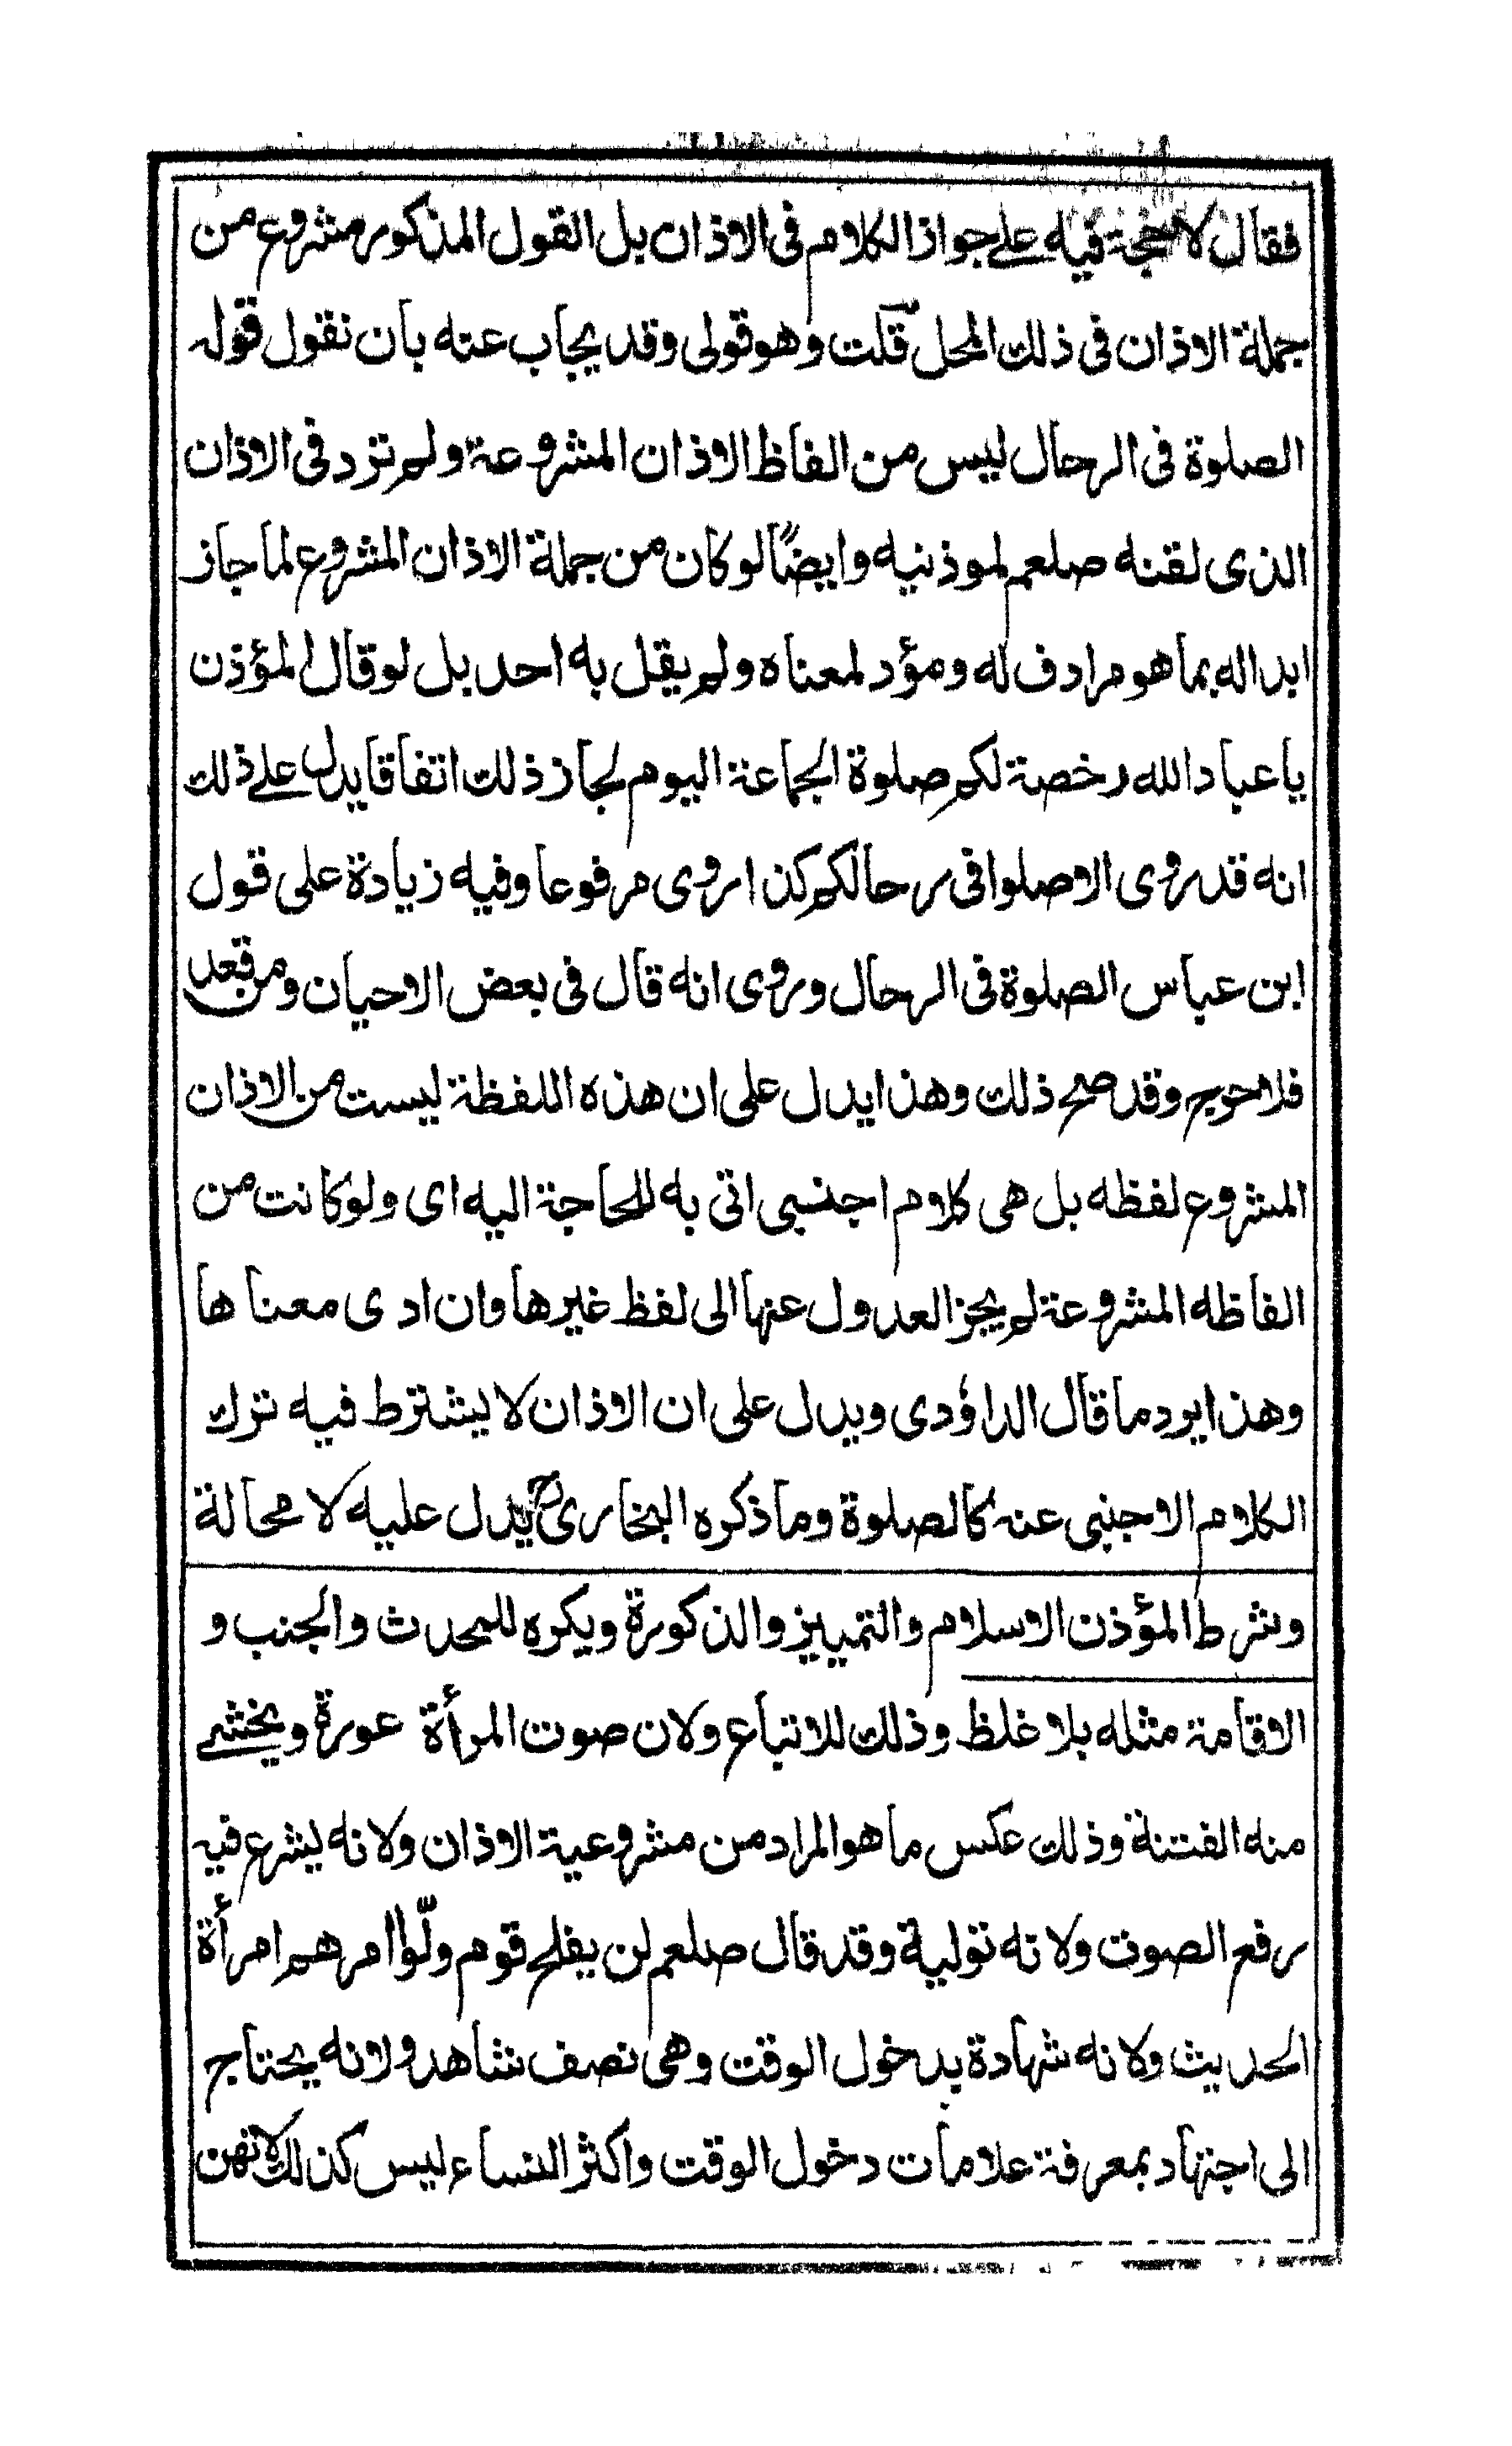 فقال لا حجة فيه على جواز الكلام فى الاذان بل القول المذكور مشروع من
جملة الاذان فى ذلك المحل قلت وهو قولى وقد يجاب عنه بان نقول قوله
الصلوة فى الرحال ليس من الفاظ الاذان المشروعة ولم تزد فى الاذان
الذى لقنه صلعم لموذنيه وايضًا لو كان من جملة الاذان المشروع لما جاز
ابداله بما هو مرادف له ومؤد لمعناه ولم يقل به احد بل لو قال المؤذن
يا عباد الله رخصة لكم صلوة الجماعة اليوم لجاز ذلك اتفاقا يدل على ذلك
انه قد روى الا صلوا فى رحالكم كذا روى مرفوعا وفيه زيادة على قول
ابن عباس الصلوة فى الرحال وروى انه قال فى بعض الاحيان ومن قعد
فلا حرج وقد صح ذلك وهذا يدل على ان هذه اللفظة ليست من الاذان
المشروع لفظه بل هى كلام اجنبى اتى به للحاجة اليه اى ولو كانت من
الفاظه المشروعة لم يجز العدول عنها الى لفظ غيرها وان ادى معناها
وهذا يرد ما قال الداؤدى ويدل على ان الاذان لا يشترط فيه ترك
الكلام الاجنبى عنه كالصلوة وما ذكره البخارى يدل عليه لا محالة
وشرط المؤذن الاسلام والتمييز والذكورة ويكره للمحدث والجنب و
الاقامة مثله بلا غلظ وذلك للاتباع ولان صوت المرأة عورة ويخشى
منه الفتنة وذلك عكس ما هو المراد من مشروعية الاذان ولانه يشرع فيه
رفع الصوت ولانه تولية وقد قال صلعم لن يفلح قوم ولّوا امرهم امرأة
الحديث ولانه شهادة بدخول الوقت وهى نصف شاهد ولانه يحتاج
الى اجتهاد بمعرفة علامات دخول الوقت واكثر النساء ليس كذلك لانهن